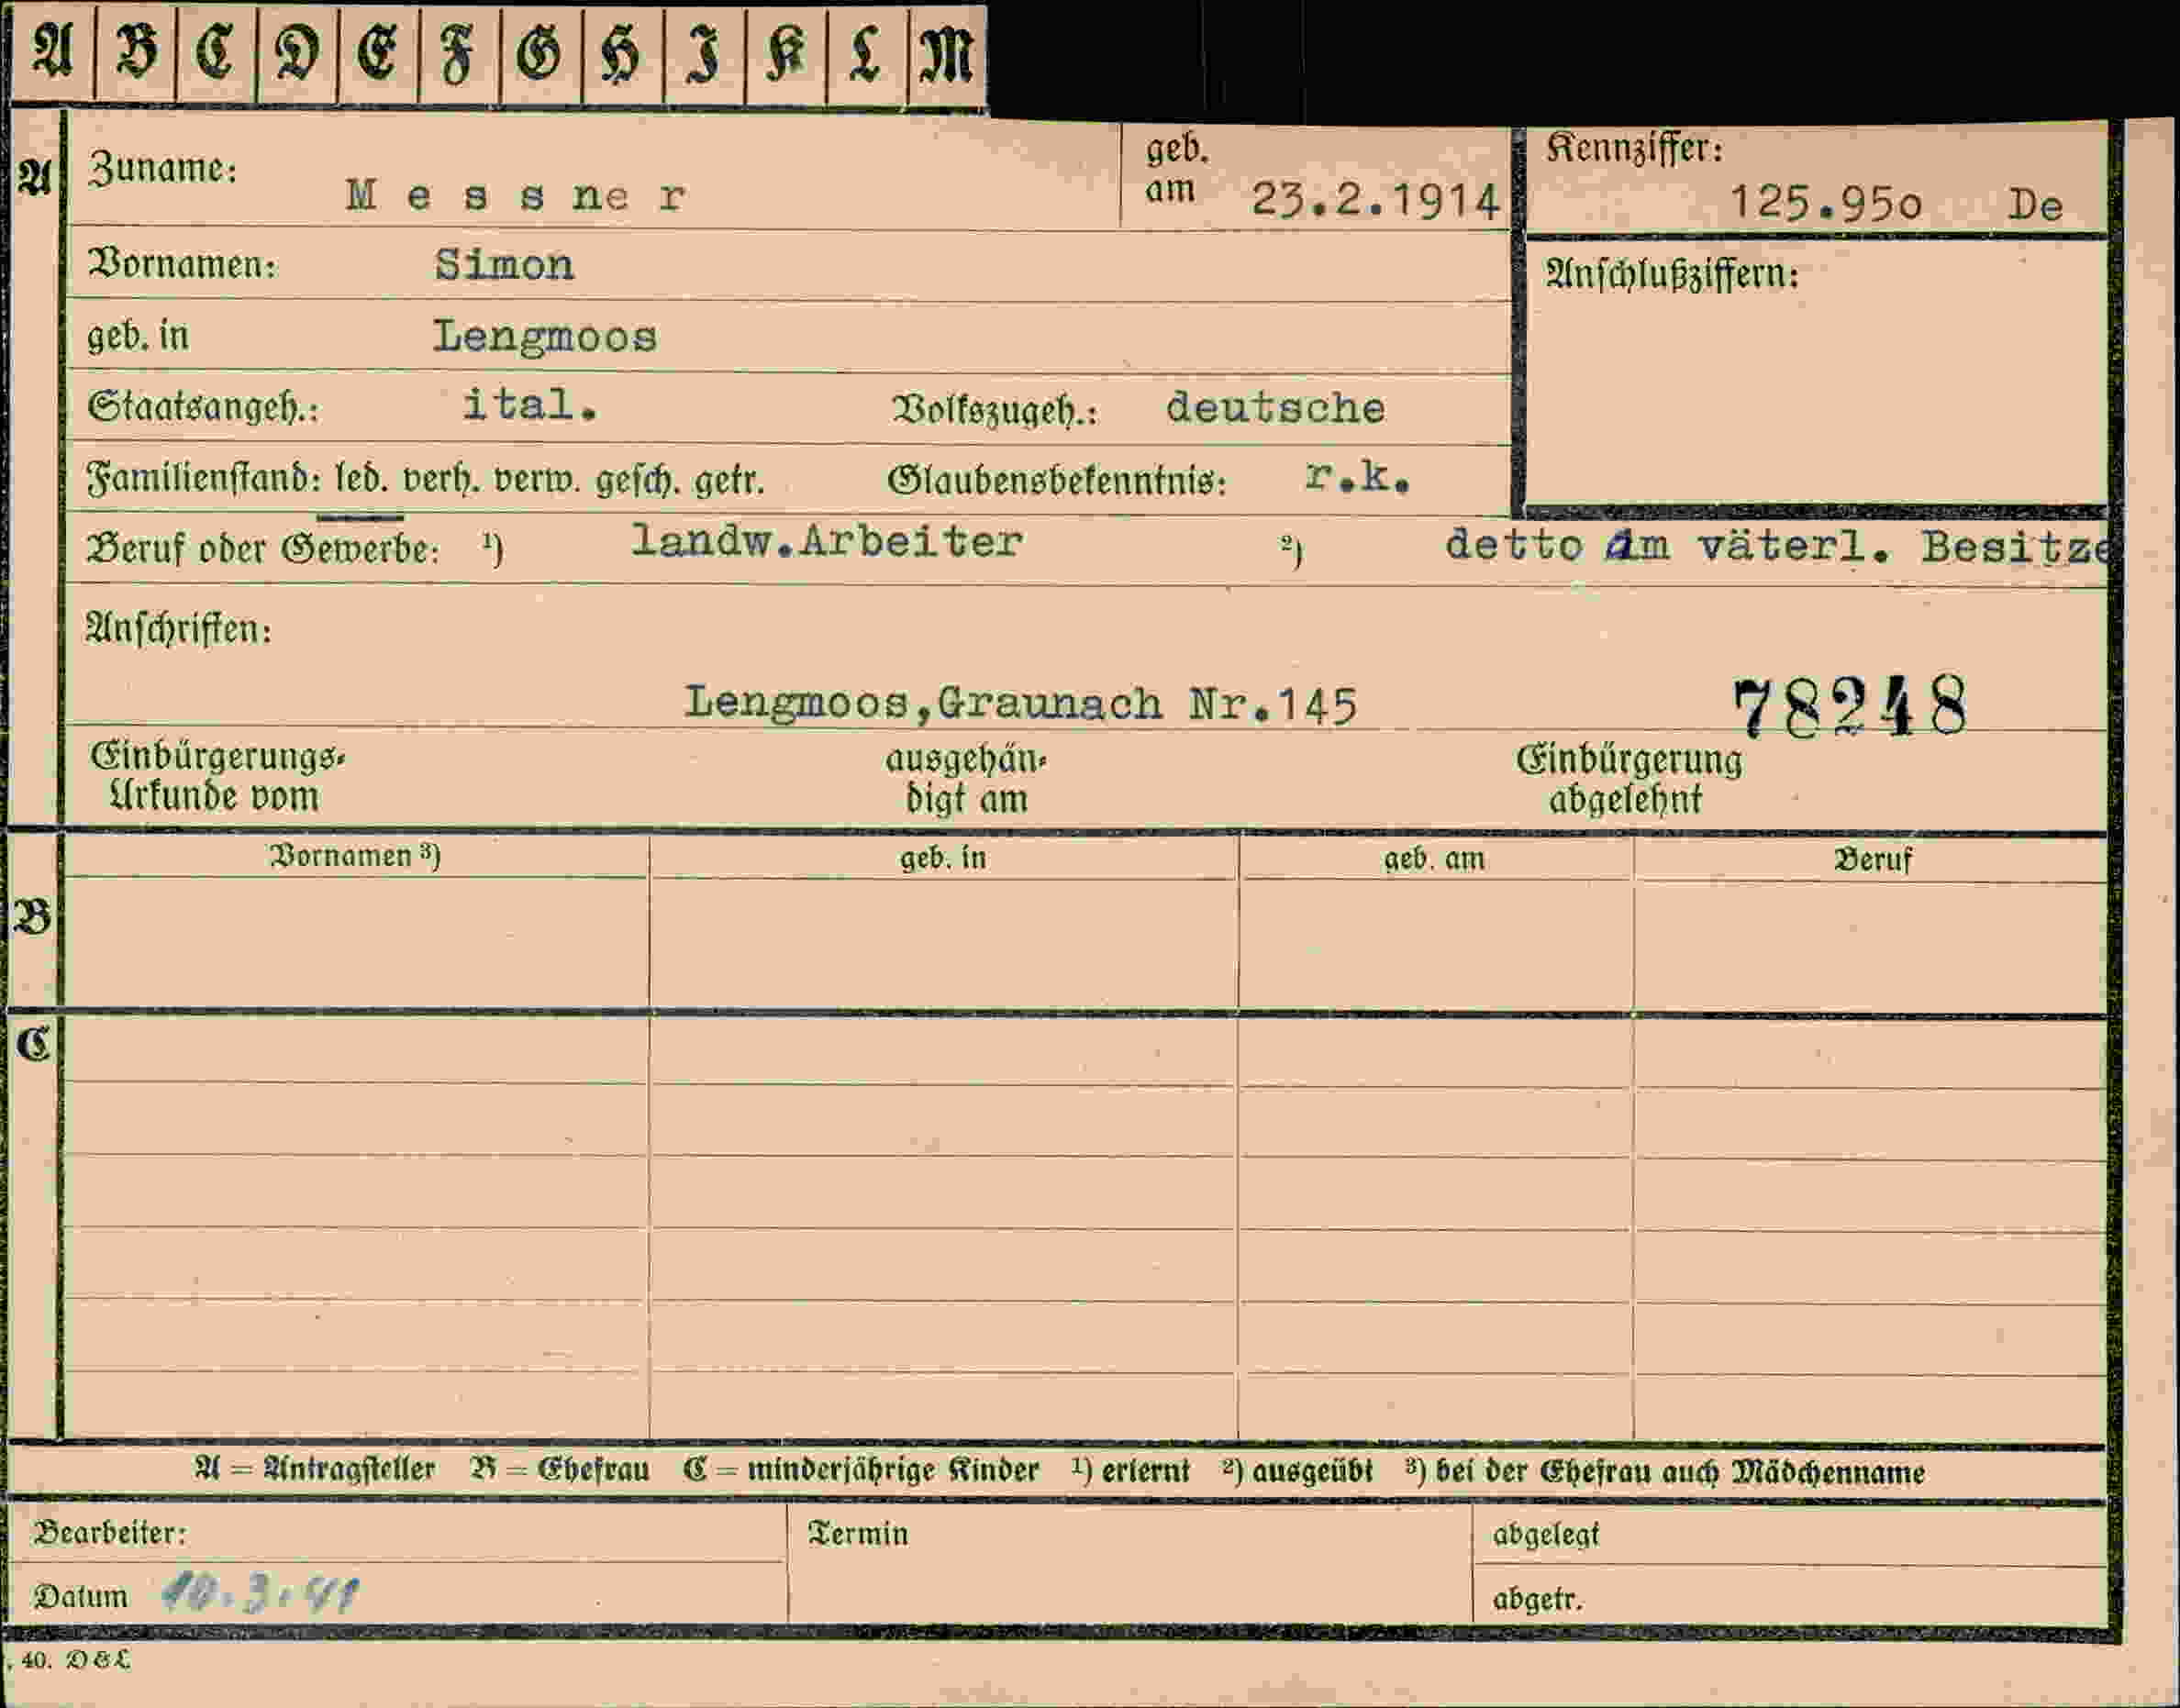 A B C D E F G H I K L M
A Zuname: Messner geb. am 23.2.1914 Kennziffer: 125.95o De
Vornamen: Simon Anschlußziffern:
geb. in Lengmoos
Staatsangeh.: ital. Volkszugeh.: deutsche
Familienstand: led. verh. verw. gesch. getr. Glaubensbekenntnis: r.k.
Beruf oder Gewerbe: 1) landw.Arbeiter 2) detto am väterl. Besitze
Anschriften:
Lengmoos,Graunach Nr.145 78248
Einbürgerungs- ausgehän- Einbürgerung
Urkunde vom digt am abgelehnt
Vornamen 3) geb. in geb. am Beruf
B
C
A = Antragsteller B = Ehefrau C = minderjährige Kinder 1) erlernt 2) ausgeübt 3) bei der Ehefrau auch Mädchenname
Bearbeiter: Termin abgelegt
Datum 10.3.41 abgetr.
. 40. D & L